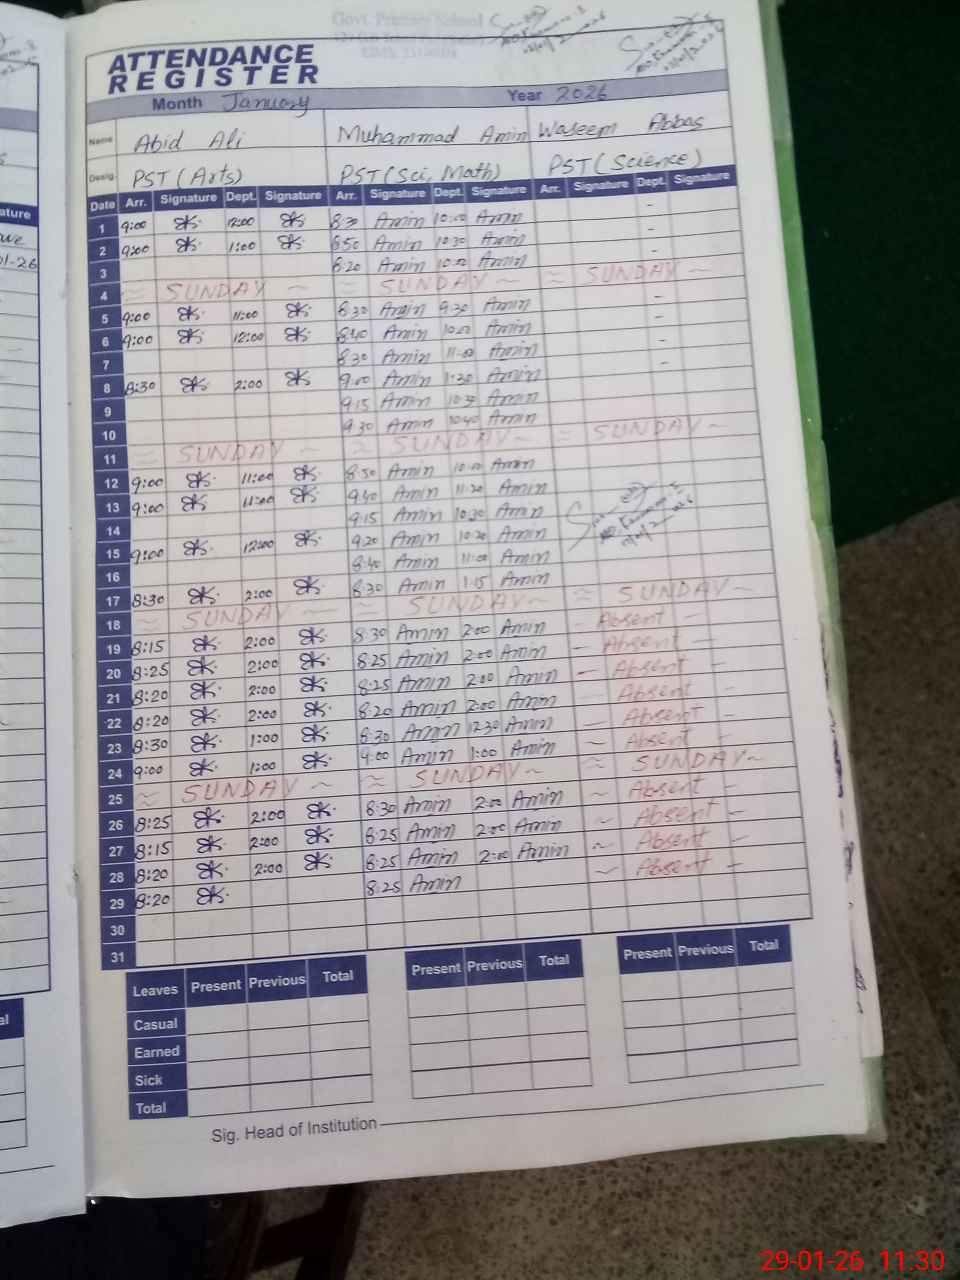 Govt. Primary School
ATTENDANCE
REGISTER
Month January Year 2026
Name Abid Ali Muhammad Amin Waseem Abbas
Desig. PST (Arts) PST (Sci, Math) PST (Science)
Date Arr. Signature Dept. Signature Arr. Signature Dept. Signature Arr. Signature Dept. Signature
1 9:00 12:00 8:30 Amin 10:00 Amin -
2 9:00 1:00 8:50 Amin 10:30 Amin -
3 8:20 Amin 10:00 Amin -
4 SUNDAY SUNDAY SUNDAY
5 9:00 11:00 8:30 Amin 9:30 Amin -
6 9:00 12:00 8:40 Amin 10:00 Amin -
7 8:30 Amin 11:00 Amin -
8 8:30 2:00 9:00 Amin 1:30 Amin -
9 9:15 Amin 10:30 Amin
10 9:30 Amin 10:40 Amin
11 SUNDAY SUNDAY SUNDAY
12 9:00 11:00 8:50 Amin 10:00 Amin
13 9:00 11:00 9:40 Amin 11:20 Amin
14 9:15 Amin 10:30 Amin
15 9:00 12:00 9:20 Amin 10:20 Amin
16 8:40 Amin 11:00 Amin
17 8:30 2:00 8:30 Amin 1:15 Amin
18 SUNDAY SUNDAY SUNDAY
19 8:15 2:00 8:30 Amin 2:00 Amin - Absent -
20 8:25 2:00 8:25 Amin 2:00 Amin - Absent -
21 8:20 2:00 8:25 Amin 2:00 Amin - Absent -
22 8:20 2:00 8:20 Amin 2:00 Amin - Absent -
23 8:30 1:00 8:30 Amin 12:30 Amin - Absent -
24 9:00 1:00 9:00 Amin 1:00 Amin - Absent -
25 SUNDAY SUNDAY SUNDAY
26 8:25 2:00 8:30 Amin 2:00 Amin - Absent -
27 8:15 2:00 8:25 Amin 2:00 Amin - Absent -
28 8:20 2:00 8:25 Amin 2:00 Amin - Absent -
29 8:20 8:25 Amin - Absent -
30
31
Leaves Present Previous Total Present Previous Total Present Previous Total
Casual
Earned
Sick
Total
Sig. Head of Institution
29-01-26 11:30